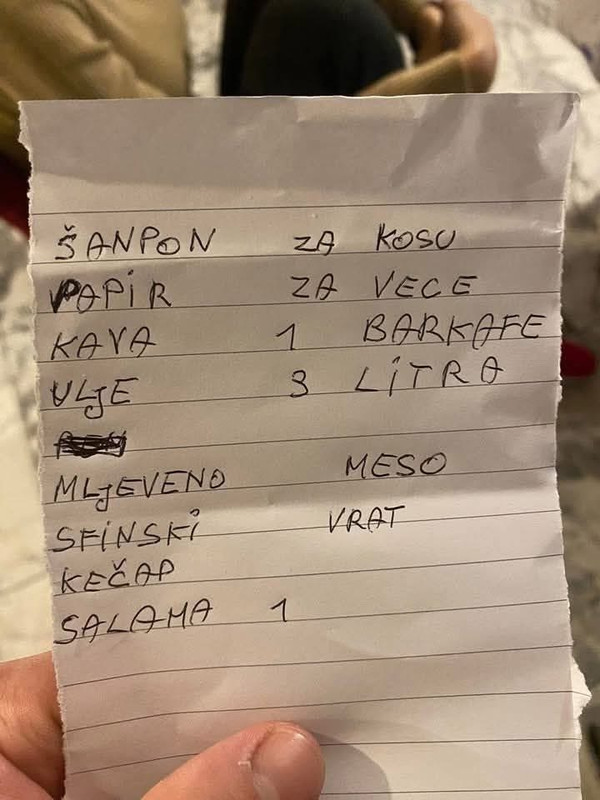 ŠANPON ZA KOSU
PAPIR ZA VECE
KAVA 1 BARKAFE
ULJE 3 LITRA
MLJEVENO MESO
SFINSKI VRAT
KEČAP
SALAMA 1